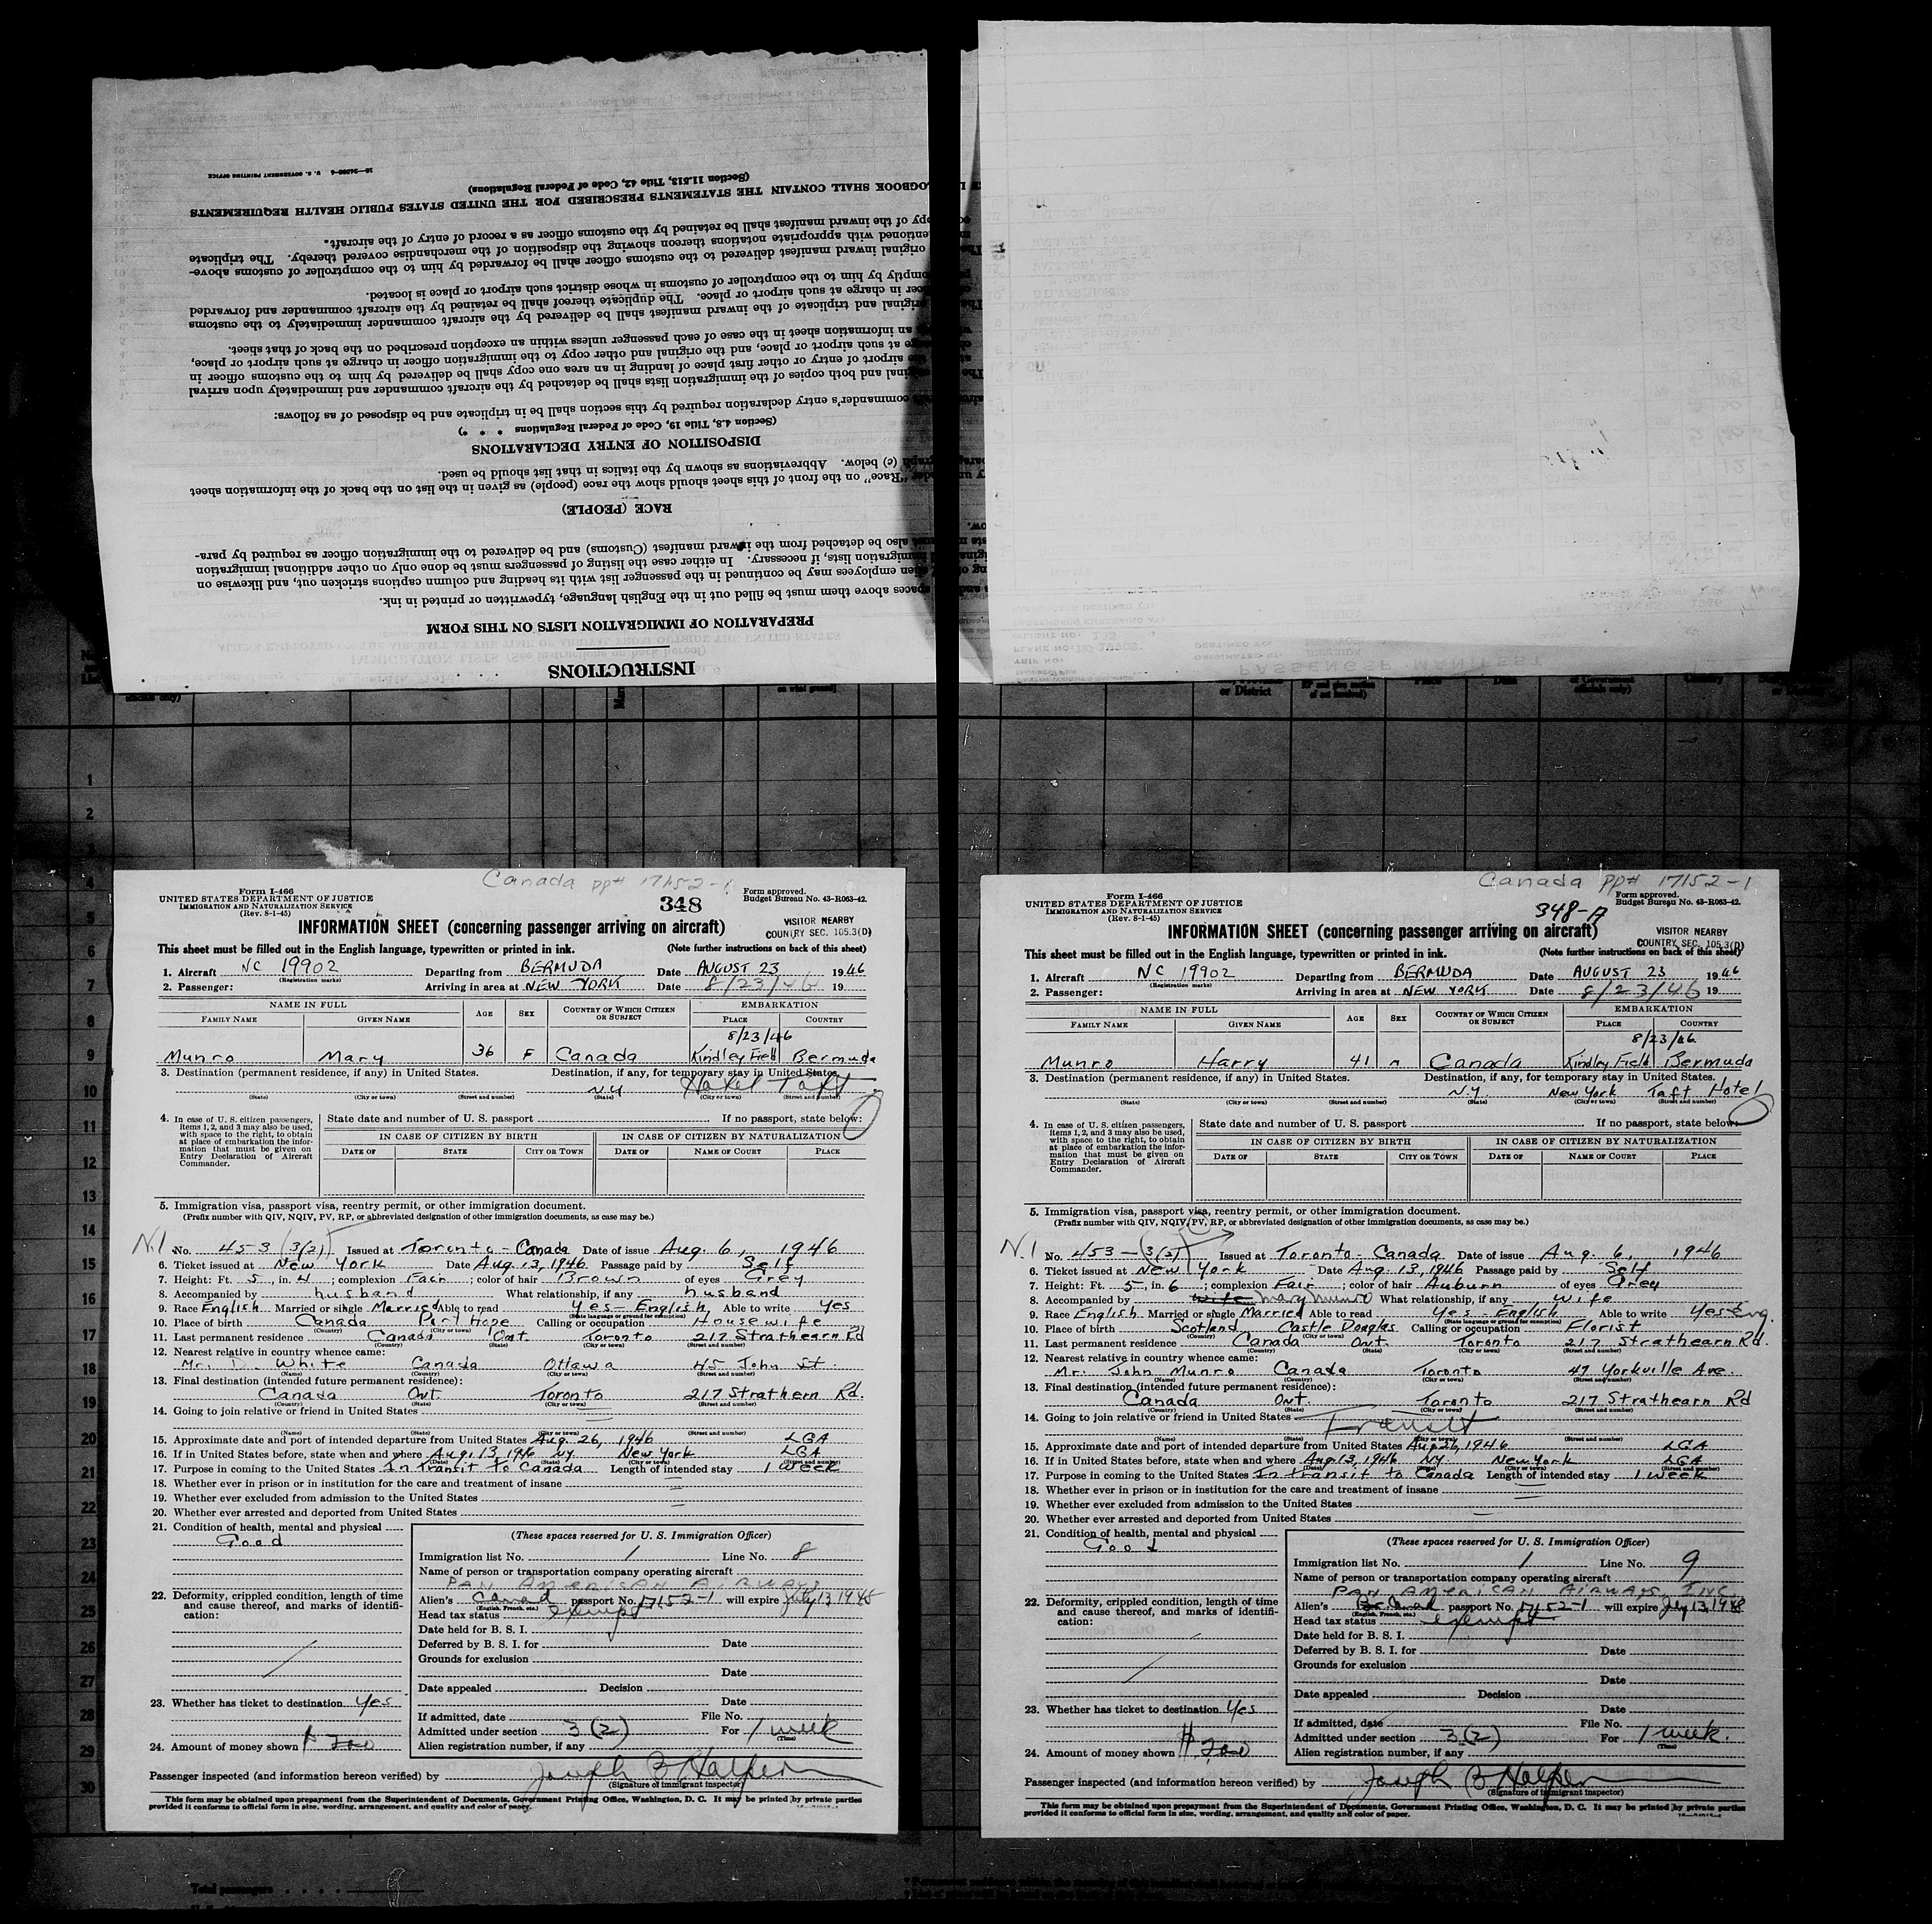 INSTRUCTIONS
PREPARATION OF IMMIGRATION LISTS ON THIS FORM
spaces above them must be filled out in the English language, typewritten or printed in ink.
employees may be continued in the passenger list with its heading and column captions stricken out, and likewise on
immigration lists, if necessary. In either case the listing of passengers must be done only on other additional immigration
also be detached from the inward manifest (Customs) and be delivered to the immigration officer as required by para-
RACE (PEOPLE)
"Race" on the front of this sheet should show the race (people) as given in the list on the back of the information sheet
(c) below. Abbreviations as shown by the italics in that list should be used.
DISPOSITION OF ENTRY DECLARATIONS
(Section 4.8, Title 19, Code of Federal Regulations * * *)
commander's entry declaration required by this section shall be in triplicate and be disposed of as follows:
and both copies of the immigration lists shall be detached by the aircraft commander and immediately upon arrival
airport of entry or other first place of landing in an area one copy shall be delivered by him to the customs officer in
at such airport or place, and the original and other copy to the immigration officer in charge at such airport or place,
an information sheet in the case of each passenger unless within an exception prescribed on the back of that sheet.
original and triplicate of the inward manifest shall be delivered by the aircraft commander immediately to the customs
in charge at such airport or place. The duplicate thereof shall be retained by the aircraft commander and forwarded
promptly by him to the comptroller of customs in whose district such airport or place is located.
original inward manifest delivered to the customs officer shall be forwarded by him to the comptroller of customs above-
mentioned with appropriate notations thereon showing the disposition of the merchandise covered thereby. The triplicate
copy of the inward manifest shall be retained by the customs officer as a record of entry of the aircraft.
LOGBOOK SHALL CONTAIN THE STATEMENTS PRESCRIBED FOR THE UNITED STATES PUBLIC HEALTH REQUIREMENTS
(Section 11.513, Title 42, Code of Federal Regulations)
U. S. GOVERNMENT PRINTING OFFICE
Canada pp# 17152-1
Form I-466
UNITED STATES DEPARTMENT OF JUSTICE
IMMIGRATION AND NATURALIZATION SERVICE
(Rev. 8-1-45)
348
Form approved.
Budget Bureau No. 43-R063-42.
INFORMATION SHEET (concerning passenger arriving on aircraft)
VISITOR NEARBY
COUNTRY SEC. 105.3(D)
This sheet must be filled out in the English language, typewritten or printed in ink. (Note further instructions on back of this sheet)
1. Aircraft NC 19902 Departing from BERMUDA Date AUGUST 23 1946
(Registration marks)
2. Passenger: Arriving in area at NEW YORK Date 8/23/46 19
NAME IN FULL AGE SEX COUNTRY OF WHICH CITIZEN OR SUBJECT EMBARKATION
FAMILY NAME GIVEN NAME PLACE COUNTRY
8/23/46
Munro Mary 36 F Canada Kindley Field Bermuda
3. Destination (permanent residence, if any) in United States. Destination, if any, for temporary stay in United States.
N.Y. Hotel Taft
(State) (City or town) (Street and number) (State) (City or town) (Street and number)
4. In case of U. S. citizen passengers, items 1, 2, and 3 may also be used, with space to the right, to obtain at place of embarkation the information that must be given on Entry Declaration of Aircraft Commander.
State date and number of U. S. passport If no passport, state below:
IN CASE OF CITIZEN BY BIRTH IN CASE OF CITIZEN BY NATURALIZATION
DATE OF STATE CITY OR TOWN DATE OF NAME OF COURT PLACE
5. Immigration visa, passport visa, reentry permit, or other immigration document.
(Prefix number with QIV, NQIV, PV, RP, or abbreviated designation of other immigration documents, as case may be.)
No. 453 (3(2)) Issued at Toronto - Canada Date of issue Aug. 6, 1946
6. Ticket issued at New York Date Aug. 13, 1946 Passage paid by Self
7. Height: Ft. 5, in. 4; complexion Fair; color of hair Brown of eyes Grey
8. Accompanied by husband What relationship, if any husband
9. Race English Married or single Married Able to read Yes - English Able to write Yes
(State language or ground for exemption)
10. Place of birth Canada Port Hope Calling or occupation Housewife
(Country) (City or town)
11. Last permanent residence Canada Ont. Toronto 217 Strathearn Rd
(Country) (State) (City or town) (Street and number)
12. Nearest relative in country whence came:
Mr. D. White Canada Ottawa 45 John St.
(Name) (Country) (City or town) (Street and number)
13. Final destination (intended future permanent residence):
Canada Ont Toronto 217 Strathern Rd.
(Country) (State) (City or town) (Street and number)
14. Going to join relative or friend in United States
(Name) (State) (City or town) (Street and number)
15. Approximate date and port of intended departure from United States Aug. 26, 1946 LGA
16. If in United States before, state when and where Aug. 13, 1946 NY. New York LGA
(Date) (State) (City or town) (Street and number)
17. Purpose in coming to the United States In transit to Canada Length of intended stay 1 week
18. Whether ever in prison or in institution for the care and treatment of insane
19. Whether ever excluded from admission to the United States
20. Whether ever arrested and deported from United States
21. Condition of health, mental and physical
Good
22. Deformity, crippled condition, length of time and cause thereof, and marks of identification:
23. Whether has ticket to destination Yes
24. Amount of money shown $ 200
(These spaces reserved for U. S. Immigration Officer)
Immigration list No. 1 Line No. 8
Name of person or transportation company operating aircraft
PAN AMERICAN AIRWAYS
Alien's Canad passport No. 17152-1 will expire July 13, 1948
(English, French, etc.)
Head tax status exempt
Date held for B. S. I.
Deferred by B. S. I. for Date
Grounds for exclusion
Date
Date appealed Decision
Date
If admitted, date File No.
Admitted under section 3(2) For 1 week
(Time)
Alien registration number, if any
Passenger inspected (and information hereon verified) by Joseph B Halpern
(Signature of immigrant inspector)
This form may be obtained upon prepayment from the Superintendent of Documents, Government Printing Office, Washington, D. C. It may be printed by private parties
provided it conforms to official form in size, wording, arrangement, and quality and color of paper.
Canada pp# 17152-1
Form I-466
UNITED STATES DEPARTMENT OF JUSTICE
IMMIGRATION AND NATURALIZATION SERVICE
(Rev. 8-1-45)
348-A
Form approved.
Budget Bureau No. 43-R063-42.
INFORMATION SHEET (concerning passenger arriving on aircraft)
VISITOR NEARBY
COUNTRY SEC. 105.3(D)
This sheet must be filled out in the English language, typewritten or printed in ink. (Note further instructions on back of this sheet)
1. Aircraft NC 19902 Departing from BERMUDA Date AUGUST 23 1946
(Registration marks)
2. Passenger: Arriving in area at NEW YORK Date 8/23/46 19
NAME IN FULL AGE SEX COUNTRY OF WHICH CITIZEN OR SUBJECT EMBARKATION
FAMILY NAME GIVEN NAME PLACE COUNTRY
8/23/46
Munro Harry 41 M Canada Kindley Field Bermuda
3. Destination (permanent residence, if any) in United States. Destination, if any, for temporary stay in United States.
N.Y. New York Taft Hotel
(State) (City or town) (Street and number) (State) (City or town) (Street and number)
4. In case of U. S. citizen passengers, items 1, 2, and 3 may also be used, with space to the right, to obtain at place of embarkation the information that must be given on Entry Declaration of Aircraft Commander.
State date and number of U. S. passport If no passport, state below:
IN CASE OF CITIZEN BY BIRTH IN CASE OF CITIZEN BY NATURALIZATION
DATE OF STATE CITY OR TOWN DATE OF NAME OF COURT PLACE
5. Immigration visa, passport visa, reentry permit, or other immigration document.
(Prefix number with QIV, NQIV, PV, RP, or abbreviated designation of other immigration documents, as case may be.)
No. 453 - (3(2)) Issued at Toronto - Canada Date of issue Aug. 6, 1946
6. Ticket issued at New York Date Aug. 13, 1946 Passage paid by Self
7. Height: Ft. 5, in. 6; complexion Fair; color of hair Auburn of eyes Grey
8. Accompanied by wife Mary Munro What relationship, if any Wife
9. Race English Married or single Married Able to read Yes - English Able to write Yes - Eng.
(State language or ground for exemption)
10. Place of birth Scotland Castle Douglas Calling or occupation Florist
(Country) (City or town)
11. Last permanent residence Canada Ont. Toronto 217 Strathearn Rd.
(Country) (State) (City or town) (Street and number)
12. Nearest relative in country whence came:
Mr. John Munro Canada Toronto 47 Yorkville Ave.
(Name) (Country) (City or town) (Street and number)
13. Final destination (intended future permanent residence):
Canada Ont. Toronto 217 Strathearn Rd
(Country) (State) (City or town) (Street and number)
14. Going to join relative or friend in United States Transit
(Name) (State) (City or town) (Street and number)
15. Approximate date and port of intended departure from United States Aug 26, 1946 LGA
16. If in United States before, state when and where Aug 13, 1946 NY New York LGA
(Date) (State) (City or town) (Street and number)
17. Purpose in coming to the United States In transit to Canada Length of intended stay 1 week
18. Whether ever in prison or in institution for the care and treatment of insane
19. Whether ever excluded from admission to the United States
20. Whether ever arrested and deported from United States
21. Condition of health, mental and physical
Good
22. Deformity, crippled condition, length of time and cause thereof, and marks of identification:
23. Whether has ticket to destination Yes
24. Amount of money shown $ 200
(These spaces reserved for U. S. Immigration Officer)
Immigration list No. 1 Line No. 9
Name of person or transportation company operating aircraft
PAN AMERICAN AIRWAYS, INC.
Alien's Canad passport No. 17152-1 will expire July 13, 1948
(English, French, etc.)
Head tax status exempt
Date held for B. S. I.
Deferred by B. S. I. for Date
Grounds for exclusion
Date
Date appealed Decision
Date
If admitted, date File No.
Admitted under section 3(2) For 1 week.
(Time)
Alien registration number, if any
Passenger inspected (and information hereon verified) by Joseph B Halpern
(Signature of immigrant inspector)
This form may be obtained upon prepayment from the Superintendent of Documents, Government Printing Office, Washington, D. C. It may be printed by private parties
provided it conforms to official form in size, wording, arrangement, and quality and color of paper.
Total passengers